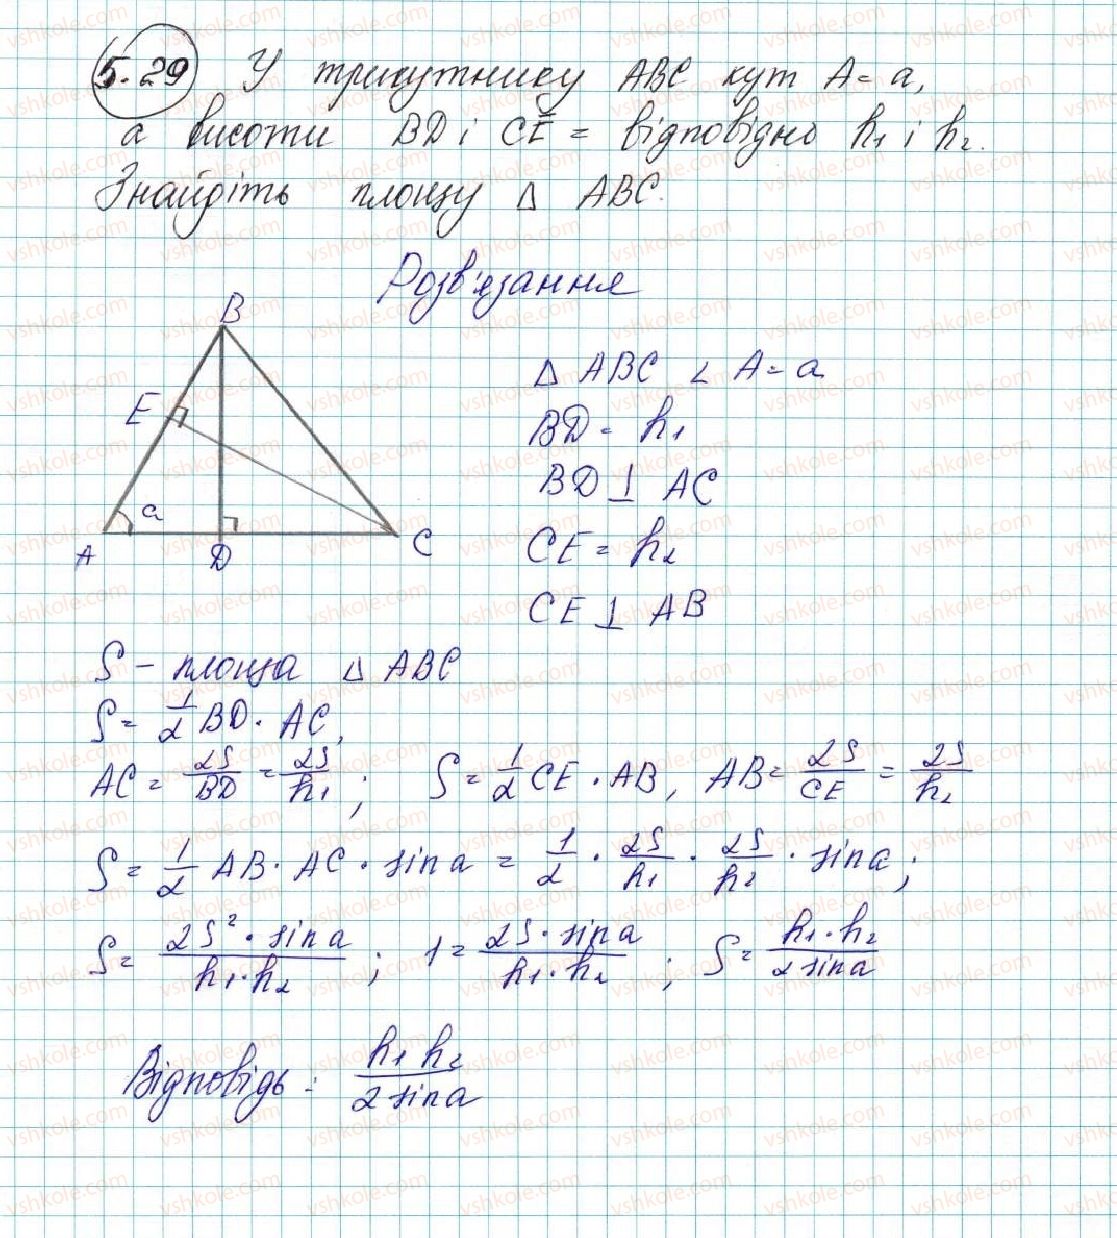 5.29 У трикутнику ABC кут A = a,
а висоти BD і CE = відповідно h₁ і h₂.
Знайдіть площу Δ ABC.
Розв'язання
B
E
a
A
D
C
Δ ABC ∠ A = a
BD = h₁
BD ⊥ AC
CE = h₂
CE ⊥ AB
S – площа Δ ABC
S = 1/2 BD · AC,
AC = 2S/BD = 2S/h₁ ; S = 1/2 CE · AB, AB = 2S/CE = 2S/h₂
S = 1/2 AB · AC · sin a = 1/2 · 2S/h₁ · 2S/h₂ · sin a ;
S = 2S² · sin a / h₁ · h₂ ; 1 = 2S · sin a / h₁ · h₂ ; S = h₁ · h₂ / 2 sin a
Відповідь : h₁ h₂ / 2 sin a
vshkole.com